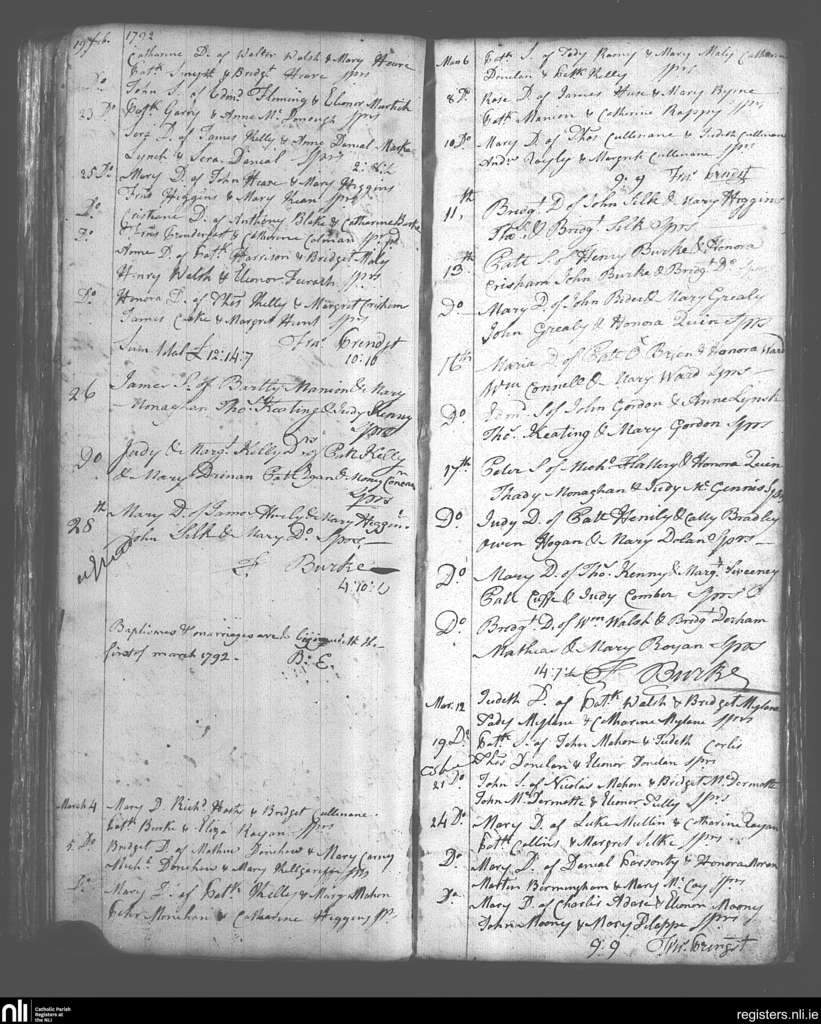 19 Feb. 1792
Catharine D. of Walter Walsh & Mary Heare
Patk. Smyth & Bridgt. Heare sprs
Do. John S. of Edmd. Fleming & Elenor Murtich
23 Do. Patk. Garry & Anne Mc. Donough sprs
Sera D. of James Kelly & Anne Danial
Lynch & Sera Danial sprs
25 Do. Mary D. of John Hease & Mary Higgins
Frins Higgins & Mary Kean sprs
Do. Cristiane D. of Anthony Blake & Catharine Burke
& Catharine Colman sprs
Do. Anne D. of Patk. Harrison & Bridget Maly
Henry Walsh & Elenor sprs
Do. Honora D. of Thos. Kelly & Margret Crisham
James Cooke & Margret Hunt sprs
Sum total £12:14:7 Frns. Prendgt
10:10
26 James S. of Bartly Manion & Mary
Monaghan Thos. Keating & Judy Kenny
Sprs
Do Judy & Margt. Kelly Drs of Patt Kelly
& Mary Drinan Patt Egan &
Sprs
28th Mary D. of James Hurly & Mary Higgins
John Silk & Mary Do Sprs
F. Burke
4:10:
Baptismes & marriages are to begin with the
first of march 1792. B: E.
March 4 Mary D. Richd. & Bridget Cullenane
Patk Burke & Eliza Rayan sprs
5. Do Bridget D. of Mathew Donehew & Mary Carny
Michl. Donehew & Mary sprs
Do. Mary D. of Patk. & Mary Mahon
Peter Monehan & Catharine Higgins sprs
Mar 6 Patk. S. of Tady & Mary Maly Catharine
Donelan & Patk Kelly sprs
8 Do. Rose D. of James Huse & Mary Byrne
Patk Manion & Catherine sprs
10 Do Mary D. of Thos Cullenane & Judith Cullenane
Andw. & Margret Cullenane sprs
9:9 Frns. Prendgt
11th Bridgt. D. of John Silk & Mary Higgins
Thos. & Bridgt. Silk Sprs
13th Patt S. of Henry Burke & Honora
Crisham John Burke & Bridgt. Do Sprs
Do Mary D. of John & Mary Grealy
John Grealy & Honora Quin Sprs
16th Maria D. of Patt O'Brien & Honora Ward
Wm Connell & Mary Ward Sprs
Do Edmd. S. of John Gordon & Anne Lynsk
Thos. Keating & Mary Gordon Sprs
17th Peter S. of Michl. Flattery & Honora Quin
Thady Monaghan & Judy Mc. Gennis Sprs
Do Judy D. of Patt Henily & Catty Bradley
Owen Hogan & Mary Dolan Sprs
Do Mary D. of Thos. Kenny & Margt. Sweeney
Patt Cuffe & Judy Comber Sprs
Do Bridgt. D. of Wm Walsh & Bridgt Dorham
Mathias & Mary Royan Sprs
14:7: F Burke
Mar. 12 Judeth D. of Patk Walsh & Bridget Mylane
Tady Mylane & Catharine Mylane sprs
19 Do Patk. S. of John Mahon & Judeth Corlis
Thos. Donelan & Elenor Donelan sprs
21 Do John S. of Nicolas Mahon & Bridget Mc. Dermotte
John Mc. Dermotte & Elenor sprs
24 Do Mary D. of Luke Mullin & Catharine Rayan
Patk Collins & Margret Silke sprs
Do. Mary D. of Danial & Honora Moran
Martin Bermingham & Mary Mc. Coy sprs
Do Mary D. of Charles & Elenor Mooney
John Mooney & Mary sprs
9:9 Frns. Prendgst
nli Catholic Parish
Registers at
the NLI
registers.nli.ie